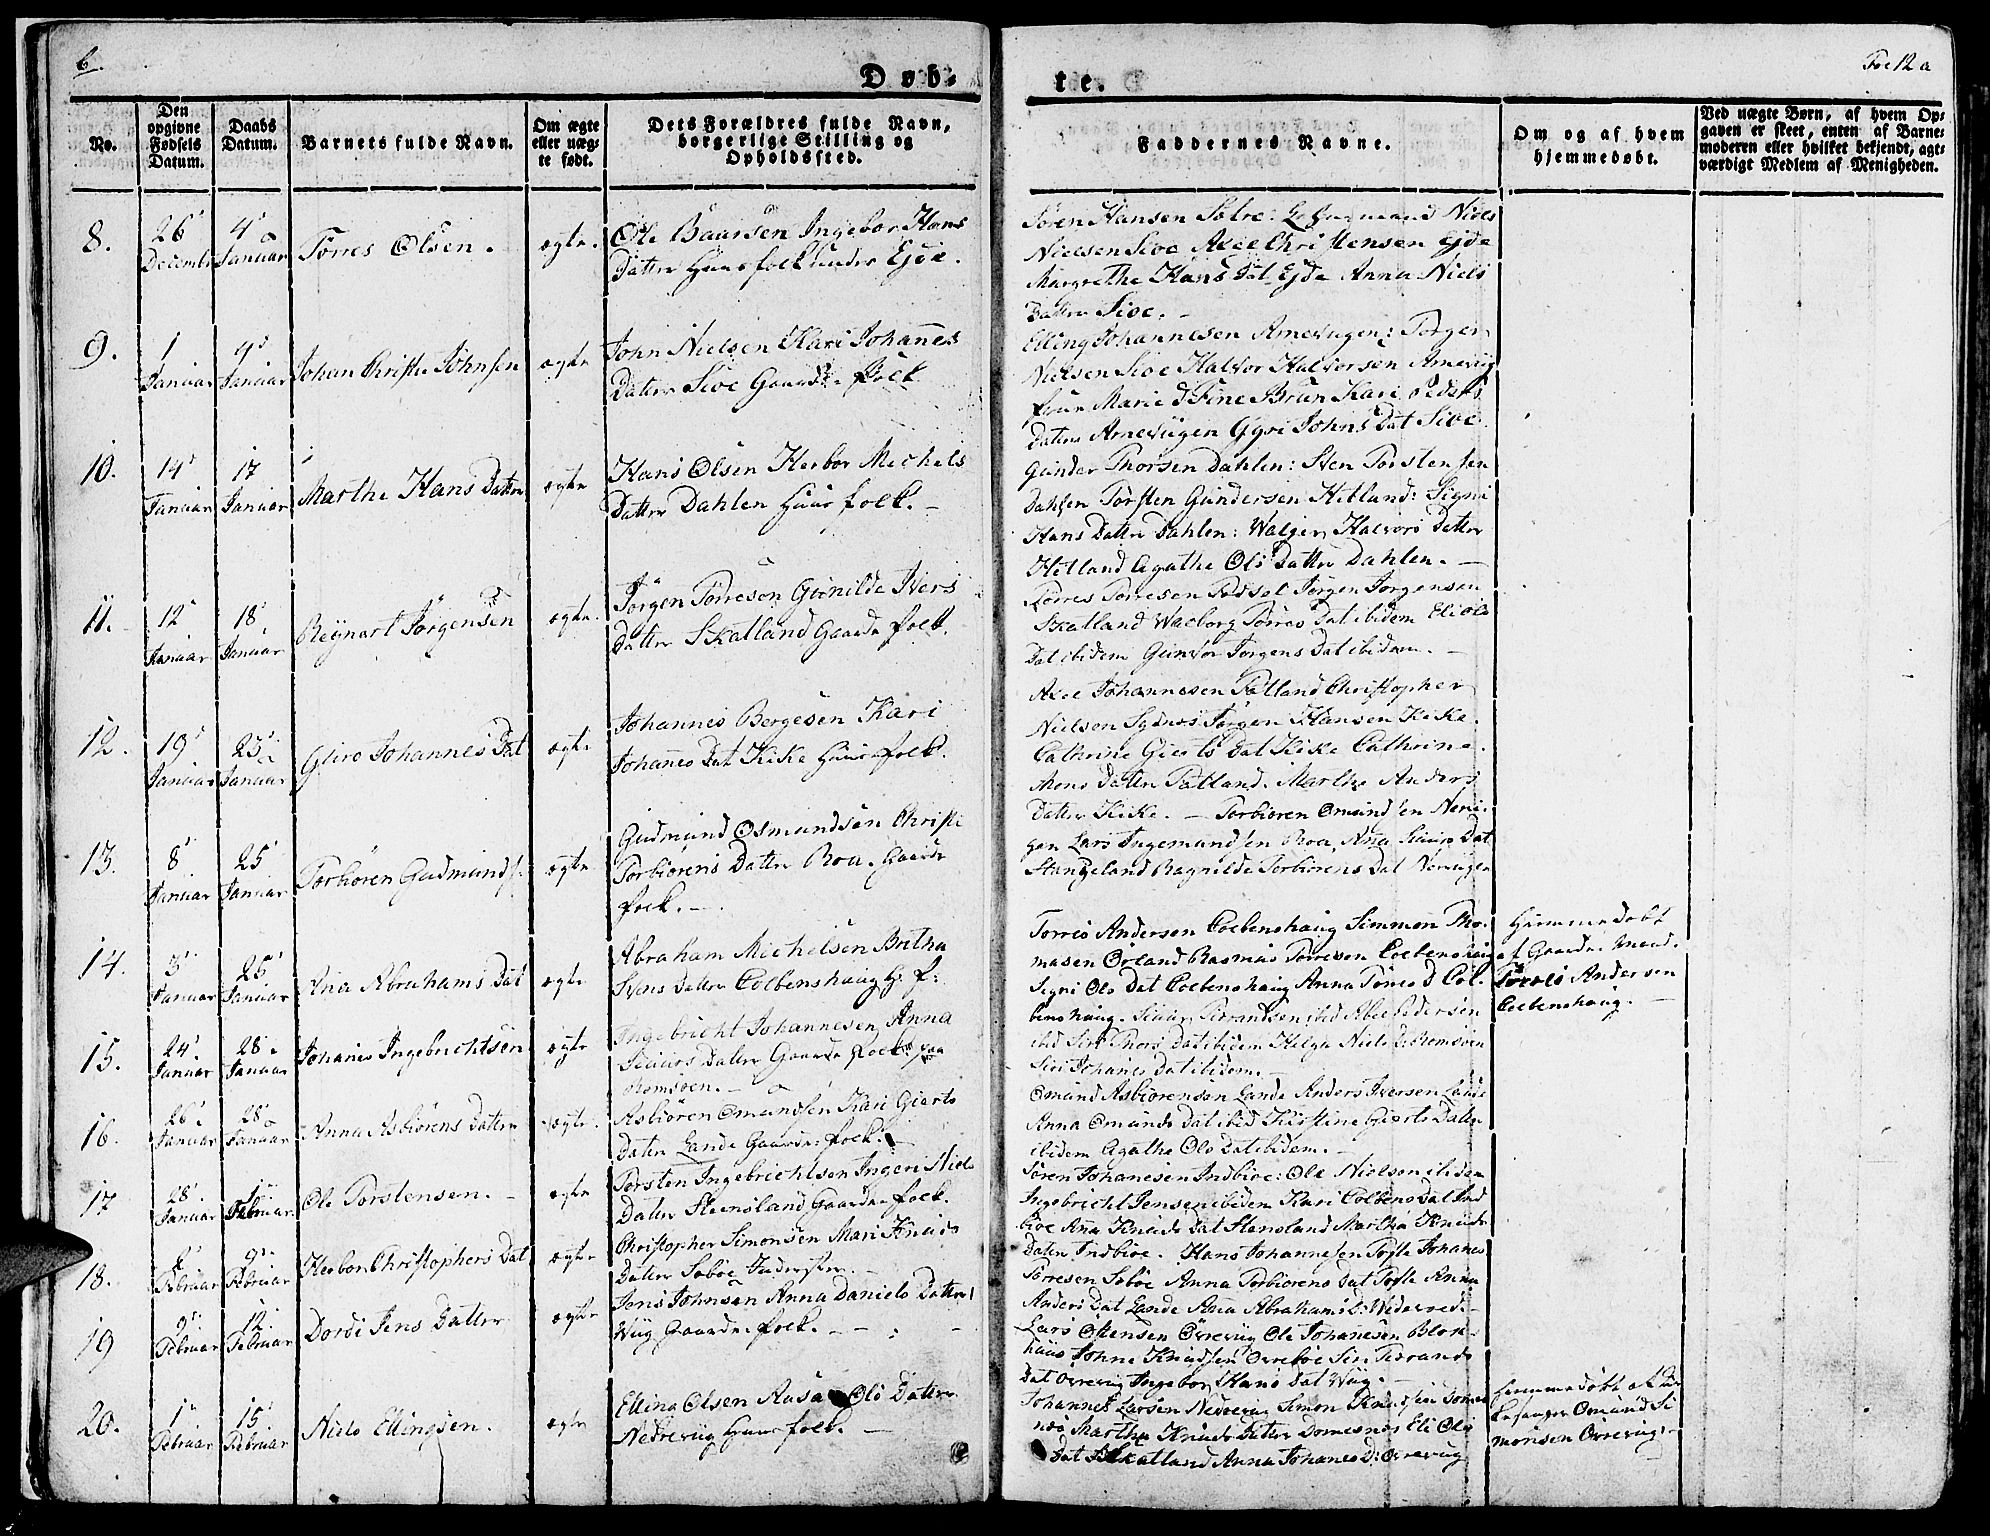 6.
Døb-
te.
Foe 12 a
No.
Den opgivne Fødsels Datum.
Daabs Datum.
Barnets fulde Navn.
Om ægte eller uæg-te født.
Dets Forældres fulde Navn, borgerlige Stilling og Opholdssted.
Faddernes Navne.
Om og af hvem hjemmedøbt.
Ved uægte Børn, af hvem Op-gaven er skeet, enten af Barne-moderen eller hvilket bekjendt, agt-værdigt Medlem af Menigheden.
8.
26
December
4
Januar
Torres Olsen.
ægte.
Ole Baarsen Ingebor Hans
Datter Huusfolk under Ejde.
Søren Hansen Nils
Nielsen Sioe Axel Christensen Ejde
Margrethe Hans Dat Ejde Anna Niels
Datter Sioe.
9.
1
Januar
9
Januar
Johan Christie Johnsen
ægte
John Nielsen Kari Johannes
Datter Sioe Gaarde folk
Elling Johannesen Arnevigen: Torger
Nielsen Sioe Halvor Halvorsen Arnevig
frue Marie d Fine Brun Kari Peders
Datter Arnevigen Gyri Johns Dat Sioe
10.
14
Januar
17
Januar
Marthe Hans Datter
ægte
Hans Olsen Herbor Michels
Datter Dahlen Huus folk.
Gunder Thorsen Dahlen: Sten Torstensen
Dahlen Torsten Gundersen Hetland: Signi
Hans Datter Dahlen: Walger Halvors Datter
Hetland Agathe Ols Datter Dahlen.
11.
12
Januar
18
Januar
Reynert Jørgensen
ægte.
Jørgen Torresen Gunilde Ivers
Datter Skatland Gaarde folk.
Torres Torresen Jørgen Jørgensen
Skatland Walborg Torres Dat ibidem Eli Ols
Dat ibidem Gunvor Jørgens Dat ibidem.
12.
19
Januar
25
Januar
Guro Johannes Dat
ægte
Johannes Bergesen Kari
Johanes Dat Kike Huus folk.
Axel Johannesen Tatland Christopher
Nielsen Jørgen Hansen Kike.
Cathrine Gierts Dat Kike Cathrine
Mons Datter Tatland. Marthe Anders
Datter Kike. — Torbiøren Omundsen
13.
8
Januar
25
Januar
Torbiøren Gudmunds.
ægte
Gudmund Osmundsen Christi
Torbiørens Datter Roa. Gaarde
folk.
Lars Ingemundsen Roa, Ana Dat
Stangeland Ragnilde Torbiørens Dat
14.
3
Januar
25
Januar
Ana Abrahams Dat
ægte
Abraham Michelsen Britha
Svens Datter Colbenshaug G. f:
Torres Andersen Colbenshaug Simmon Tho-
masen Ørland Rasmus Torresen Colbenshaug
Signi Ols Dat Colbenshaug Anna Torres D Col-
benshaug.
Hiemmedøbt
af Gaarde Mand.
Torres Andersen
Colbenshaug.
15.
24
Januar
28
Januar
Johanes Ingebrichtsen
ægte
Ingebricht Johannesen, Anna
Datter Gaarde folk paa
ibid Siri Thors Dat ibidem Helga Niels D
Siri Johanes Dat ibidem.
16.
26
Januar
28
Januar
Anna Asbiørens Datter
ægte.
Asbiøren Omundsen Kari Gierts
Datter Lande Gaarde folk.
Omund Asbiørensen Lande Anders Iversen Lande
Anna Omunds Dat ibid Kirstine Gierts Datter
ibidem Agathe Ols Dat ibidem.
17
28
Januar
1
Februar
Ole Torstensen.
ægte
Torsten Ingebrichtsen Ingeri Niels
Datter Steensland Gaarde folk.
Søren Johanesen Indbioe: Ole Nielsen ibidem
Ingebricht Jensen ibidem Kari Colbens Dat Ind
bioe Ana Knuds Dat Stensland Martha Knuds
Datter Indbioe.
18.
Februar
9
Februar
Herbor Christophers Dat
ægte
Christopher Simonsen Mari Knuds
Datter Søbøe Inderster.
Hans Johannesen Tofte Johanes
Torresen Søbøe Anna Torbiørens Dat Tofte Anna
Anders Dat Lande Ana Abrahams D:
19
9
Februar
12
Februar
Dordi Jens Datter
ægte
Jens Johnsen Anna Daniels Datter
Wiig Gaarde folk.
Lars Østensen Ovrevig Ole Johanesen Blok-
huus Johne Knudsen Siri
Dat Ovrevig Ingebor Hans Dat Wiig.
20.
1
Februar
15
Februar
Niels Ellingsen.
ægte
Elling Olsen Aasa Ols Datter
Nedrevig Huus folk.
Johannes Larsen Nedrevig Simon Knudsen
Martha Knuds Datter Eli Ols
Dat Skatland Anna Johanes D: Ovrevig
Hiemmedøbt af
Omund Si
monsen Ovrevig